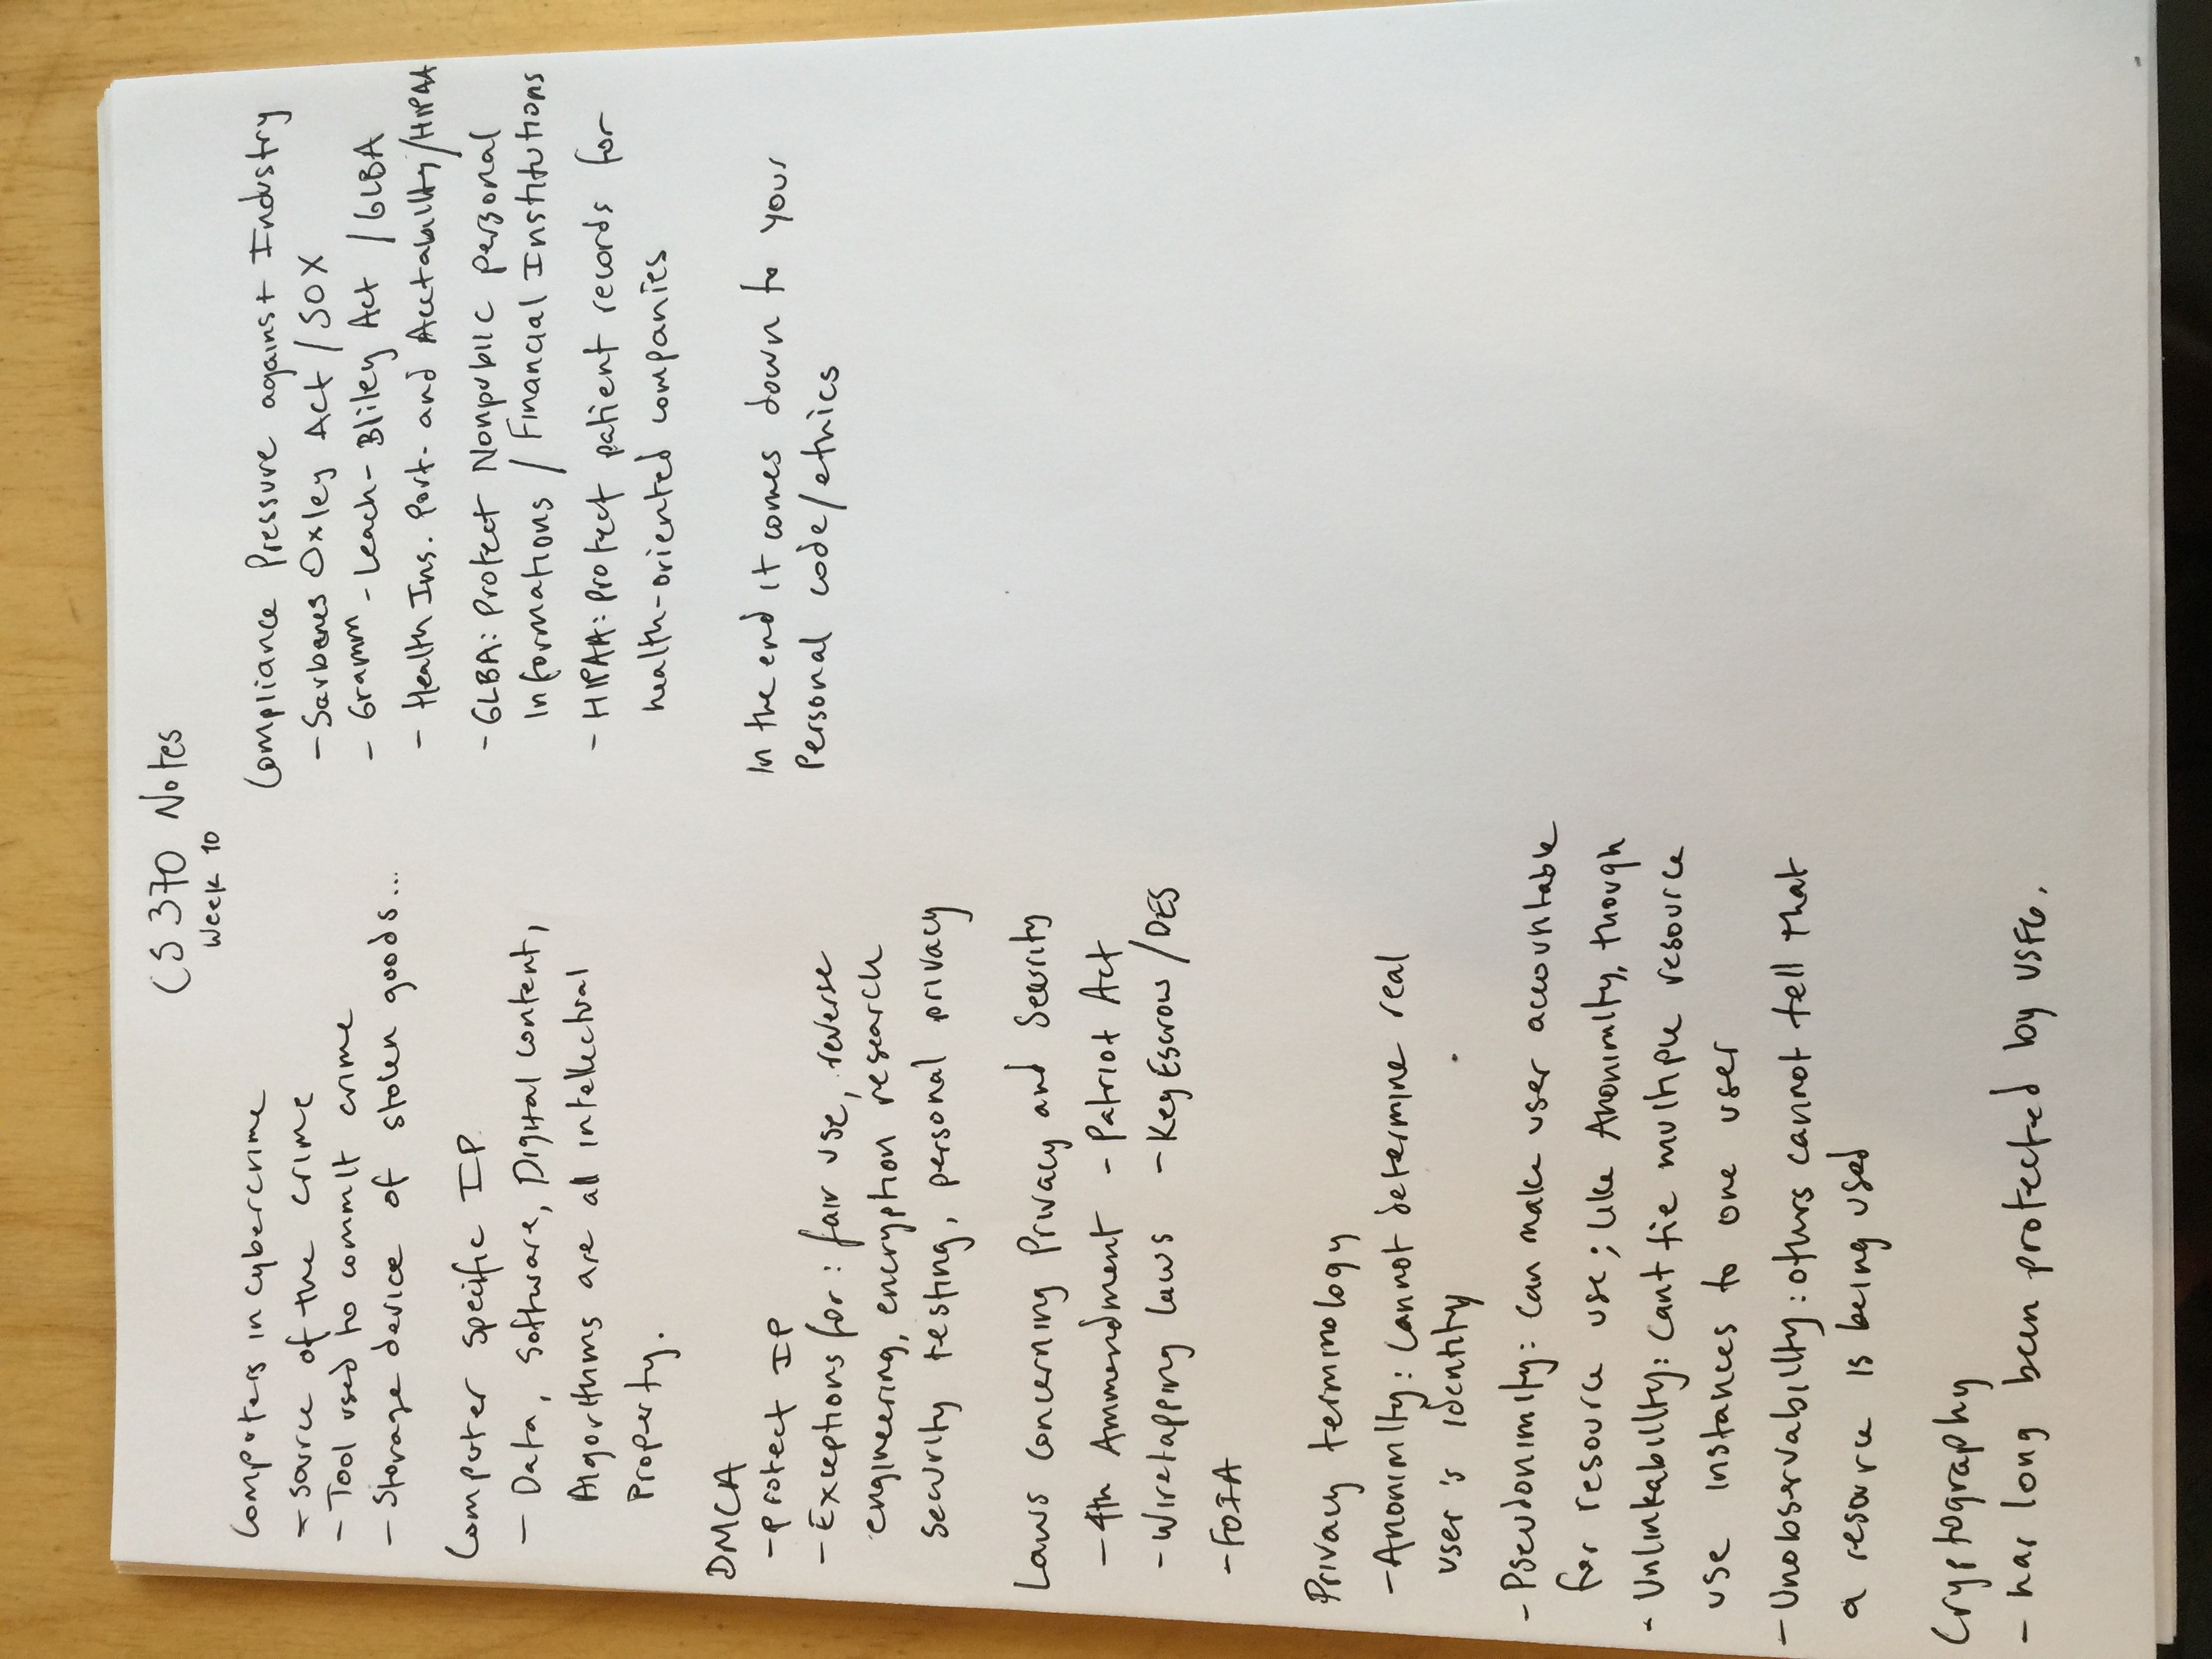 CS 370 Notes
Week 10
Computers in cybercrime
- source of the crime
- Tool used to commit crime
- Storage device of stolen goods...
Computer specific IP
- Data, Software, Digital content,
Algorithms are all intellectual
Property.
DMCA
- protect IP
- Exceptions for: fair use, reverse
engineering, encryption research
security testing, personal privacy
Laws concerning Privacy and Security
- 4th Ammendment - Patriot Act
- Wiretapping laws - Key Escrow / DES
- FOIA
Privacy terminology
- Anonimity: cannot determine real
user's identity
- Pseudonimity: can make user accountable
for resource use; like Anonimity, though
- Unlinkability: cant tie multiple resource
use instances to one user
- Unobservability: others cannot tell that
a resource is being used
Cryptography
- has long been protected by USFG.
Compliance Pressure against Industry
- Sarbenes Oxley Act / SOX
- Gramm - Leach - Bliley Act / GLBA
- Health Ins. Port. and Acctability / HIPAA
- GLBA: Protect Nonpublic personal
informations / Financial Institutions
- HIPAA: protect patient records for
health-oriented companies
In the end it comes down to your
Personal code/ethics